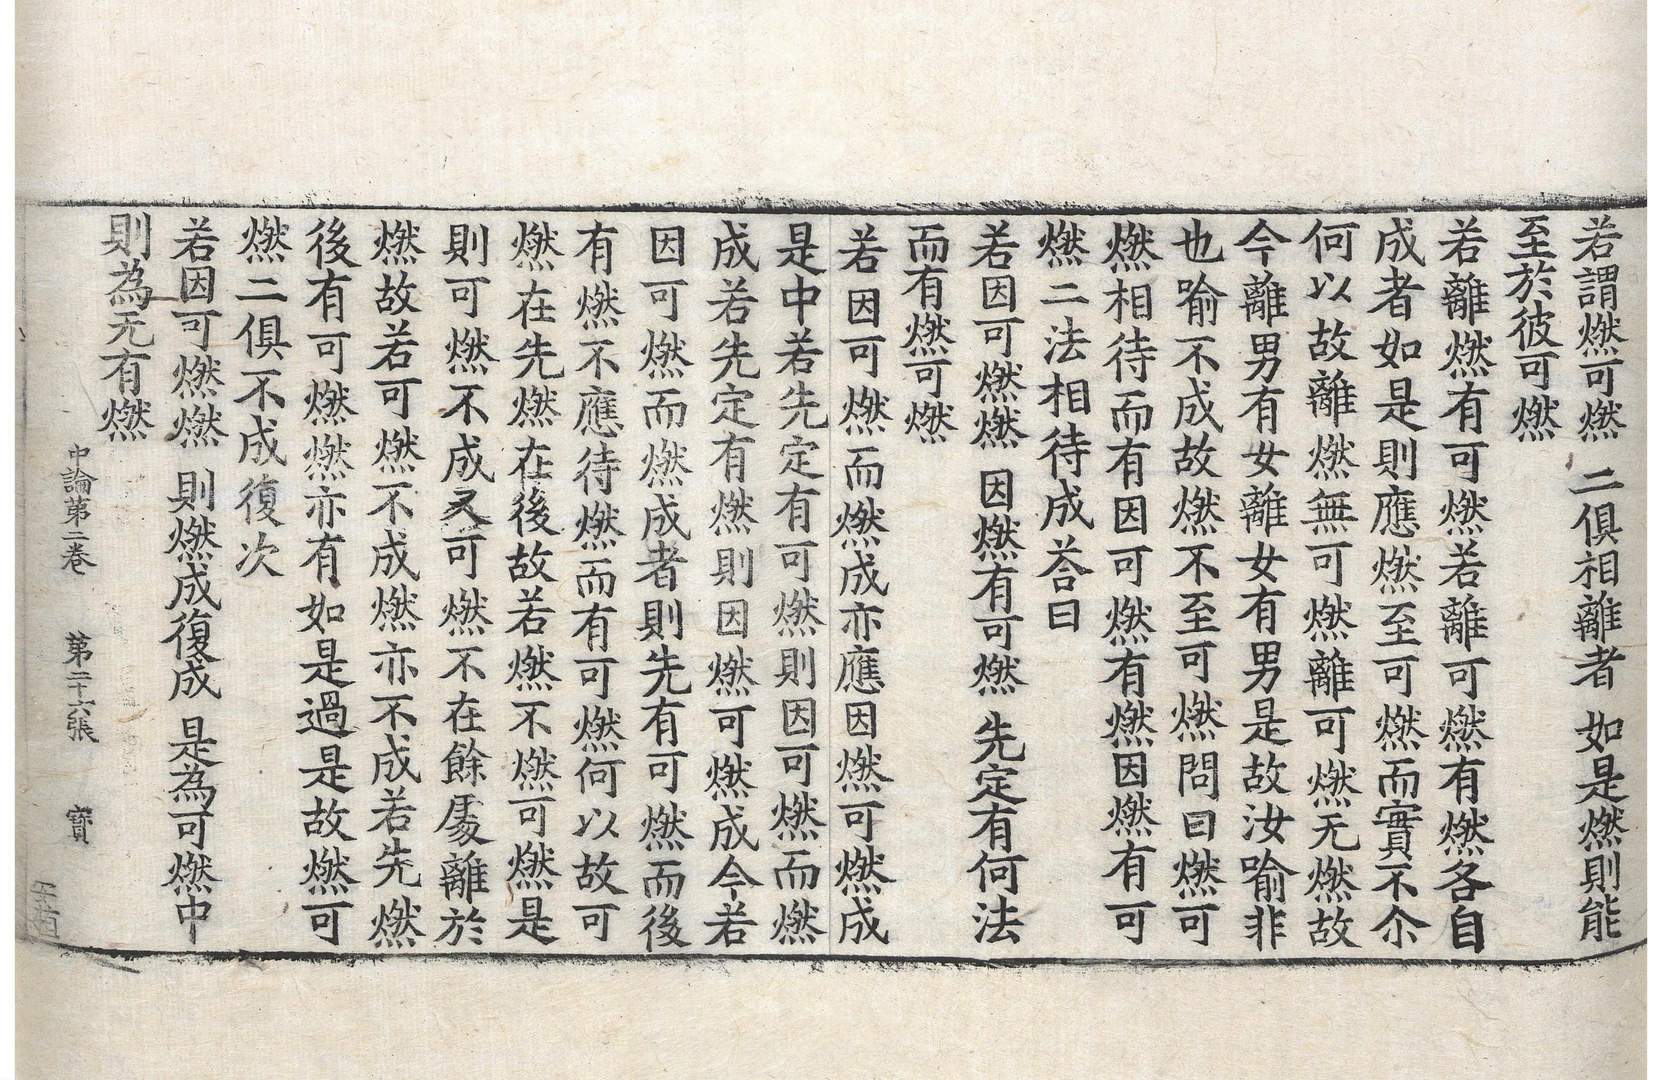 若謂燃可燃　二俱相離者　如是燃則能
至於彼可燃
若離燃有可燃若離可燃有燃各自
成者如是則應燃至可燃而實不尒
何以故離燃無可燃離可燃无燃故
今離男有女離女有男是故汝喻非
也喻不成故燃不至可燃問曰燃可
燃相待而有因可燃有燃因燃有可
燃二法相待成荅曰
若因可燃燃　因燃有可燃　先定有何法
而有燃可燃
若因可燃而燃成亦應因燃可燃成
是中若先定有可燃則因可燃而燃
成若先定有燃則因燃可燃成今若
因可燃而燃成者則先有可燃而後
有燃不應待燃而有可燃何以故可
燃在先燃在後故若燃不燃可燃是
則可燃不成又可燃不在餘處離於
燃故若可燃不成燃亦不成若先燃
後有可燃燃亦有如是過是故燃可
燃二俱不成復次
若因可燃燃　則燃成復成　是為可燃中
則為无有燃
中論第二卷　第二十六張　寶